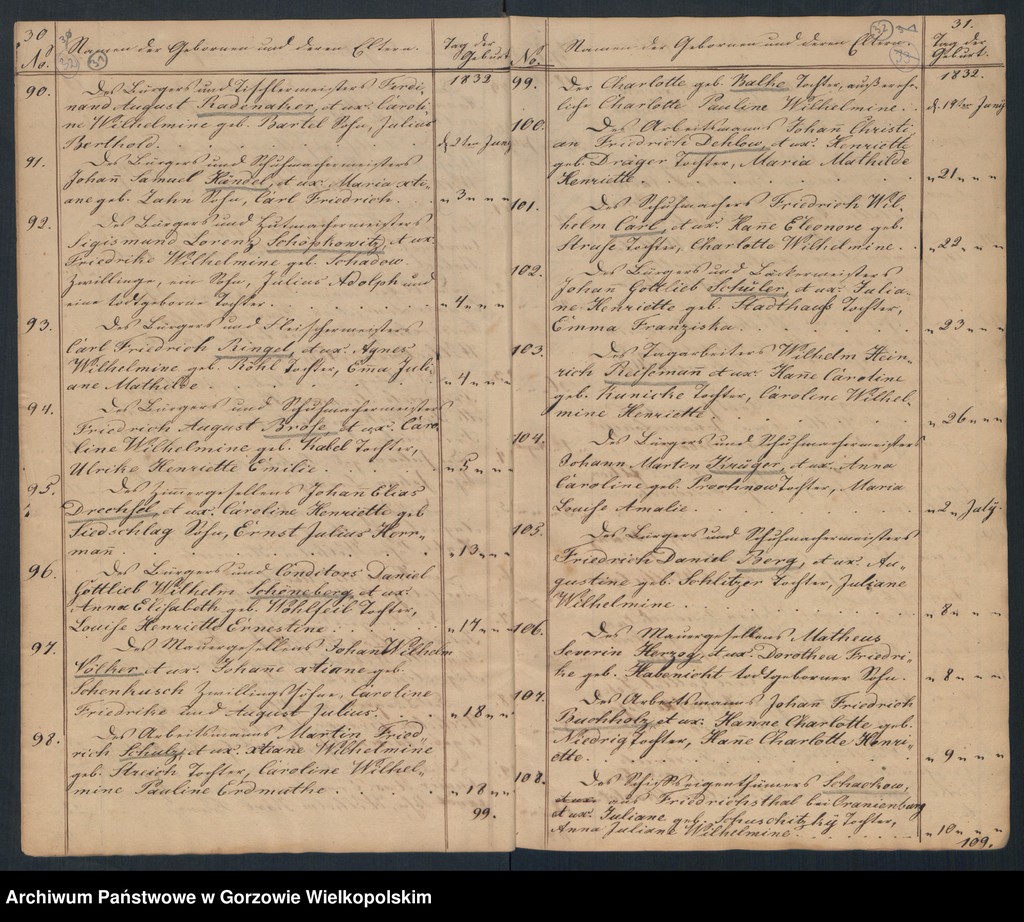 30
No.
Namen der Gebornen und deren Eltern.
Tag der
Geburt
1832
90. Des Bürgers und Tischlermeisters Ferdi-
nand August Radenacker, et ux. Caroli-
ne Wilhelmine geb. Bartel Sohn, Julius
Berthold. d. 2ten Juny
91. Des Bürgers und Schuhmachermeisters
Johan̄ Samuel Händel, et ux. Maria xti-
ane geb. Zahn Sohn, Carl Friedrich. " 3 " "
92. Des Bürgers und Hutmachermeisters
Sigismund Lorenz Schöpkowitz, et ux.
Friedrike Wilhelmine geb. Schadow
Zwillinge, ein Sohn, Julius Adolph und
eine todtgeborne Tochter. " 4 " "
93. Des Bürgers und Fleischermeisters
Carl Friedrich Ringel, et ux. Agnes
Wilhelmine geb. Röhl Tochter, Em̄a Juli-
ane Mathilde " 4 " "
94. Des Bürgers und Schuhmachermeisters
Friedrich August Bröse, et ux. Caro-
line Wilhelmine geb. Kabel Tochter,
Ulrike Henriette Emilie. " 5 " "
95. Des Zimmergesellens Johan̄ Elias
Drechsel, et ux. Caroline Henriette geb
Tiedschlag Sohn, Ernst Julius Herr-
man̄ " 13 " "
96. Des Bürgers und Conditors Daniel
Gottlieb Wilhelm Schöneberg, et ux.
Anna Elisabeth geb. Wohlfeil Tochter,
Louise Henriette Ernestine. " 17 " "
97. Des Mauergesellens Johan̄ Wilhelm
Völker et ux. Johan̄e xtiane geb.
Schenkusch Zwillings Caroline
Friedrike und August Julius. " 18 " "
98. Des Arbeitsmanns Martin Fried-
rich Schulz, et ux. xtiane Wilhelmine
geb. Streich Tochter, Caroline Wilhel-
mine Pauline Erdmuthe. " 18 " "
99.
31.
No.
Namen der Gebornen und deren Eltern.
Tag der
Geburt.
1832.
99. Der Charlotte geb. Balke Tochter, außerehe-
liche Charlotte Pauline Wilhelmine. d. 19ten Juny
100. Des Arbeitsmanns Johan̄ Christi-
an Friedrich Dehlow, et ux. Henriette
geb. Dräger Tochter, Maria Mathilde
Henriette. " 21 " "
101. Des Schuhmachers Friedrich Wil-
helm Carl, et ux. Han̄e Eleonore geb.
Struse Tochter, Charlotte Wilhelmine. " 22 " "
102. Des Bürgers und Bäckermeisters
Johan̄ Gottlieb Schüler, et ux. Julia-
ne Henriette geb. Stadthaus Tochter,
Emma Franziska. " 23 " "
103. Des Tagarbeiters Wilhelm Hein-
rich Reissman̄ et ux. Han̄e Caroline
geb. Kunicke Tochter, Caroline Wilhel-
mine Henriette. " 26 " "
104. Des Bürgers und Schuhmachermeisters
Johann Marten Krüger, et ux. Anna
Caroline geb. Prochnow Tochter, Maria
Louise Amalie. " 2 " July.
105. Des Bürgers und Schuhmachermeisters
Friedrich Daniel Berg, et ux. Au-
gustine geb. Schlitzer Tochter, Juliane
Wilhelmine. " 8 " "
106. Des Mauergesellens Matheus
Severin Herzog, et ux. Dorothea Friedri-
ke geb. Habenicht todtgeborner Sohn. " 8 " "
107. Des Arbeitsmanns Johan̄ Friedrich
Buchholz, et ux. Hanne Charlotte geb.
Niedrig Tochter, Han̄e Charlotte Henri-
ette. " 9 " "
108. Des Schiffseigenthümers Schackow,
aus Friedrichsthal bei Oranienburg
et ux. Juliane geb. Schuschitzky Tochter,
Anna Juliane Wilhelmine. " 10 " "
109.
Archiwum Państwowe w Gorzowie Wielkopolskim